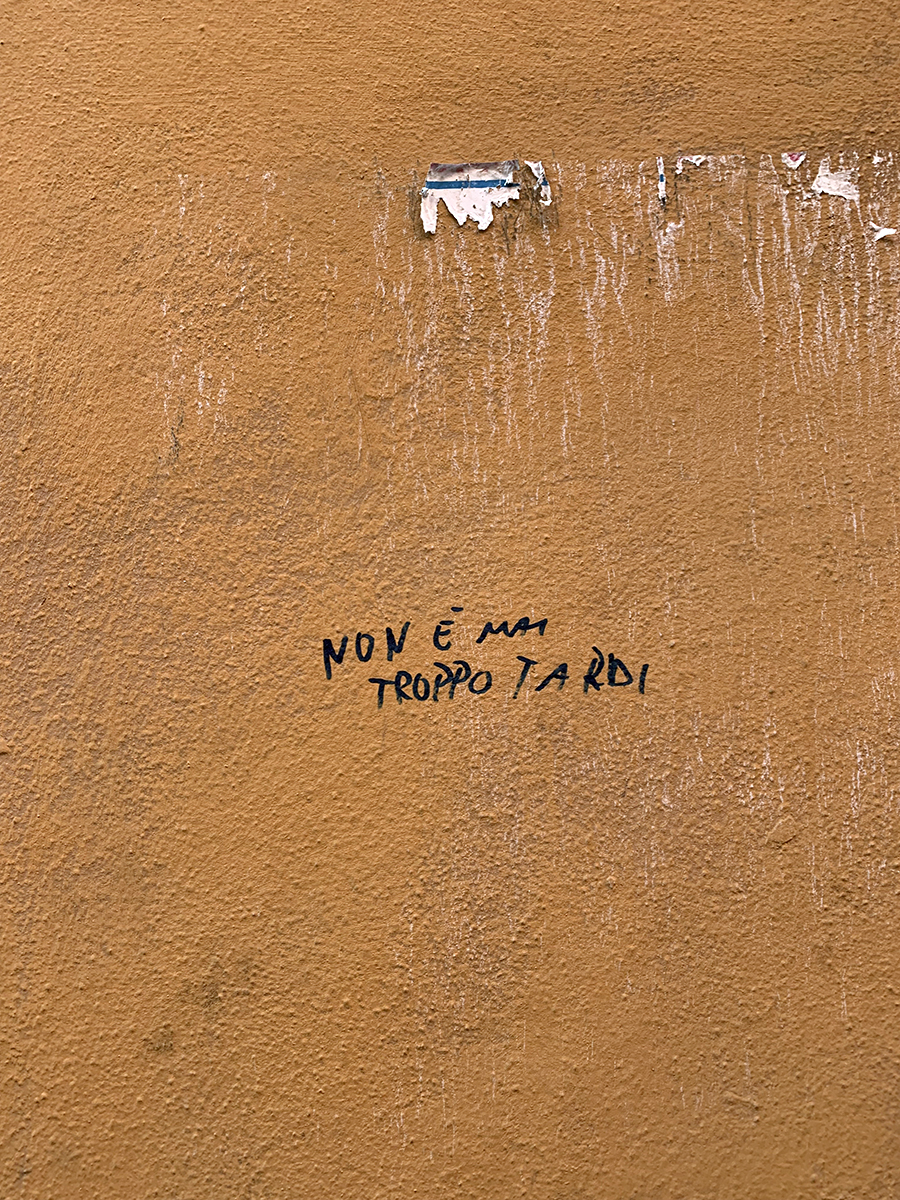 NON È MAI
TROPPO TARDI